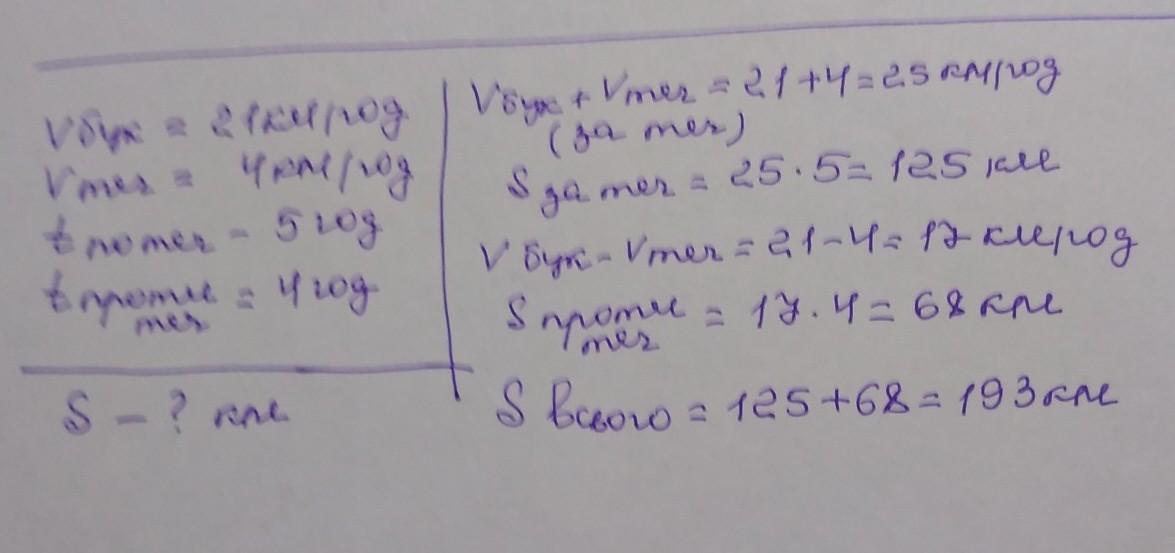 Vбук = 21км/год
Vтеч = 4км/год
t по теч - 5 год
t проти теч = 4 год
S - ? км
Vбук + Vтеч = 21+4=25 км/год
(за теч)
S за теч = 25·5=125 км
V бук - Vтеч = 21-4=17 км/год
S проти теч = 17·4=68 км
S всього = 125+68=193 км